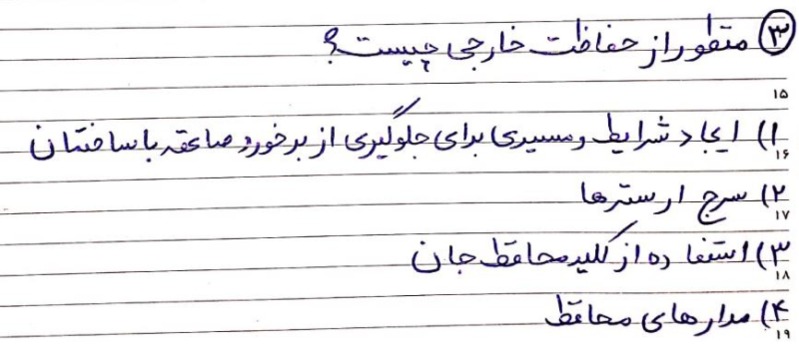 ۳ منظور از حفاظت خارجی چیست؟
۱۵
۱) ایجاد شرایط و مسیری برای جلوگیری از برخورد صاعقه با ساختمان
۱۶
۲) سرج ارسترها
۱۷
۳) استفاده از کلید محافظ جان
۱۸
۴) مدارهای محافظ
۱۹